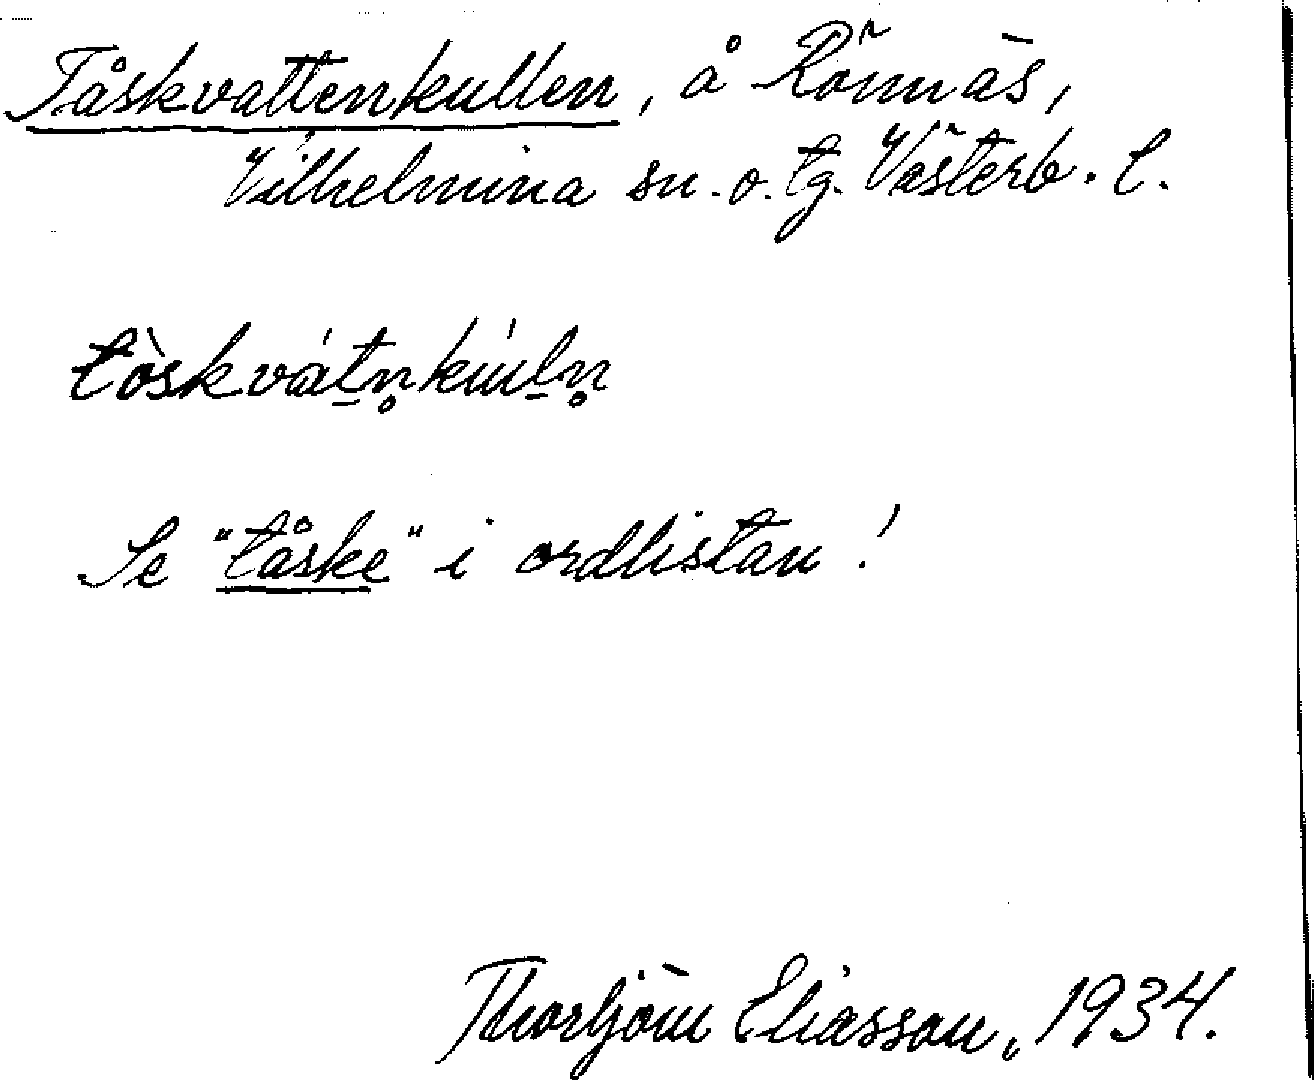 Tåskvattenkullen, å Rönnäs,
Vilhelmina sn. o. tg. Västerb. l.
tòskvát̲n̥kúl̲n̥
Se "tåske" i ordlistan!
Thorbjörn Eliasson, 1934.